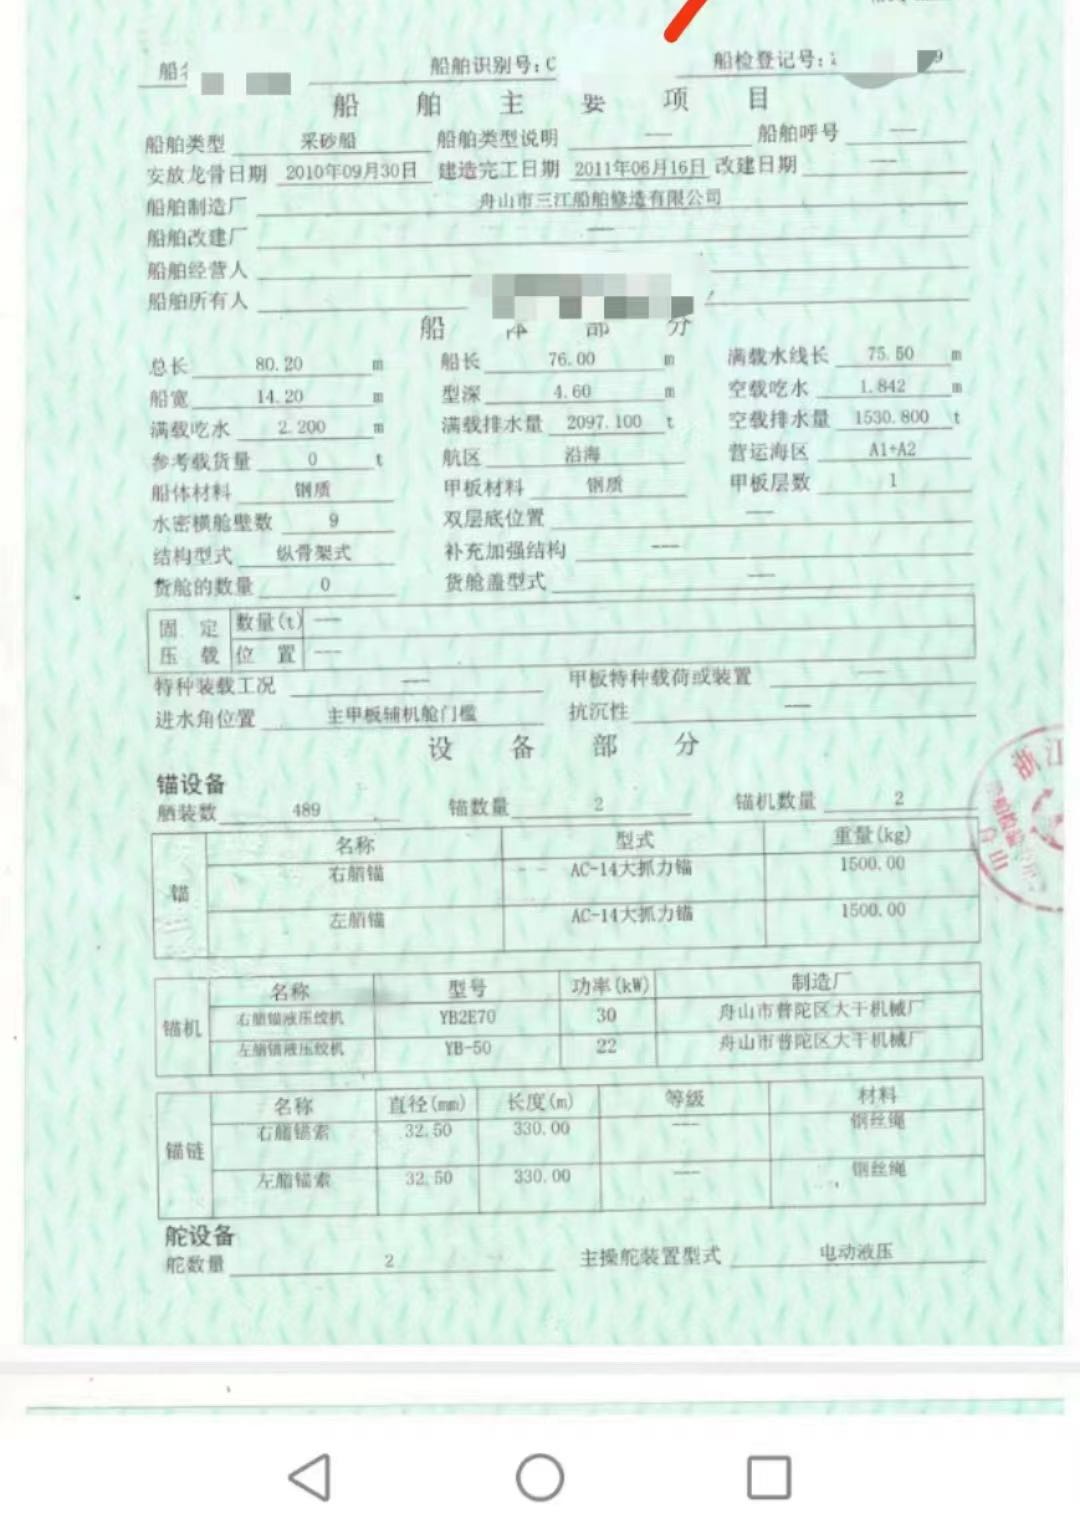 船舶识别号:C 船检登记号: 9
船舶主要项目
船舶类型 采砂船 船舶类型说明 --- 船舶呼号 ---
安放龙骨日期 2010年09月30日 建造完工日期 2011年06月16日 改建日期 ---
船舶制造厂 舟山市三江船舶修造有限公司
船舶改建厂 ---
船舶经营人
船舶所有人
船体部分
总长 80.20 m 船长 76.00 m 满载水线长 75.50 m
船宽 14.20 m 型深 4.60 m 空载吃水 1.842 m
满载吃水 2.200 m 满载排水量 2097.100 t 空载排水量 1530.800 t
参考载货量 0 t 航区 沿海 营运海区 A1+A2
船体材料 钢质 甲板材料 钢质 甲板层数 1
水密横舱壁数 9 双层底位置 ---
结构型式 纵骨架式 补充加强结构 ---
货舱的数量 0 货舱盖型式 ---
固定压载 数量(t) ---
位置 ---
特种装载工况 --- 甲板特种载荷或装置 ---
进水角位置 主甲板辅机舱门槛 抗沉性 ---
设备部分
锚设备
舾装数 489 锚数量 2 锚机数量 2
锚 名称 型式 重量(kg)
右艏锚 AC-14大抓力锚 1500.00
左艏锚 AC-14大抓力锚 1500.00
锚机 名称 型号 功率(kW) 制造厂
右艏锚液压绞机 YB2E70 30 舟山市普陀区大干机械厂
左艏锚液压绞机 YB-50 22 舟山市普陀区大干机械厂
锚链 名称 直径(mm) 长度(m) 等级 材料
右艏锚索 32.50 330.00 --- 钢丝绳
左艏锚索 32.50 330.00 --- 钢丝绳
舵设备
舵数量 2 主操舵装置型式 电动液压
浙江